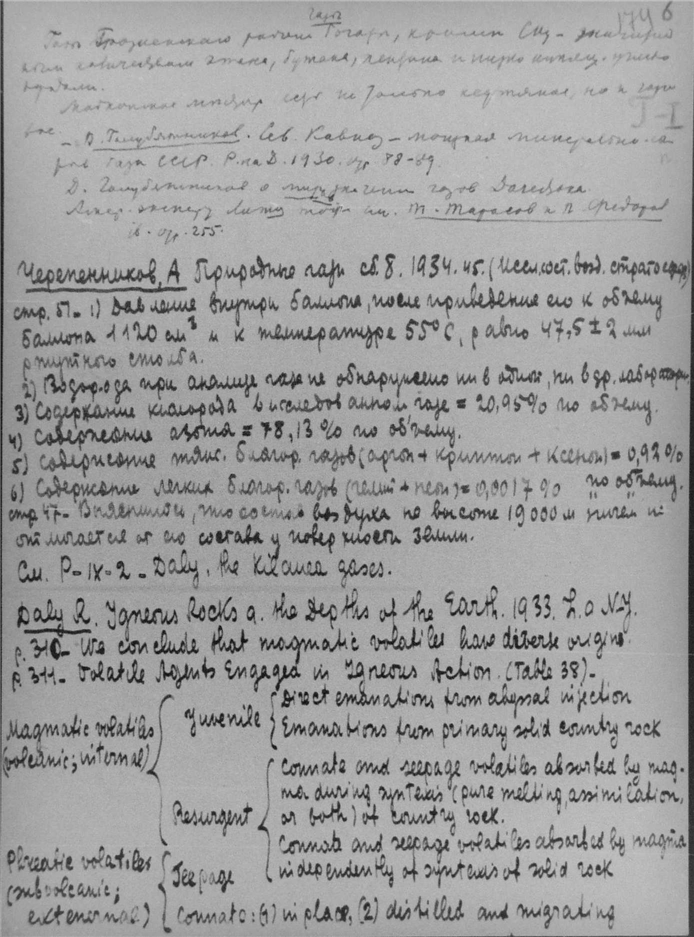 Газы
1746
Газы Грозненского района богаты, кроме CH4 – значитель
ными количествами этана, бутана, пентана и
I-I
Майкопское не только нефтяное, но и газо
вое.
– Д. Голубятников. Сев. Кавказ – мощная минерально-сы
рье. база СССР. Р. на Д. 1930. стр. 88-89.
Д. Голубятников о газов Дагестана.
ib. стр. 255.
Черепенников, А Природные газы сб. 8. 1934. 45. (Иссл. сост. возд. стратосферы)
стр. 51_ 1) Давление внутри баллона, после приведения его к объему
баллона 1120 см3 и к температуре 55°С, равно 47,5 ± 2 мм
ртутного столба.
2) Водорода при анализе газа не обнаружено ни в одной, ни в др. лаборатории.
3) Содержание кислорода в исследованном газе = 20,95% по объему.
4) Содержание азота = 78,13% по объему.
5) Содержание тяж. благор. газов (аргон + криптон + ксенон) = 0,92%
6) Содержание легких благор. газов (гелий + неон) = 0,0017% по объему.
стр 47– Выяснилось, что состав воздуха на высоте 19000 м ничем не
отличается от его состава у поверхности Земли.
См. P-IX-2 – Daly, the Kilauea gases.
Daly R. Igneous Rocks a. the Depths of the Earth. 1933. L. a N-Y.
p. 310– We conclude that magmatic volatiles have diverse origins.
p. 311– Volatile Agents Engaged in Igneous Action. (Table 38)–
Magmatic volatiles (volcanic; internal)
Juvenile
Direct emanations from abyssal injection
Emanations from primary solid country rock
Resurgent
Connate and seepage volatiles absorbed by mag-
ma during syntexis (pure melting, assimilation,
or both) of country rock.
Connate and seepage volatiles absorbed by magma
independently of syntexis of solid rock
Phreatic volatiles
(subvolcanic;
extenernal)
Seepage
Connate: (1) in place, (2) distilled and migrating